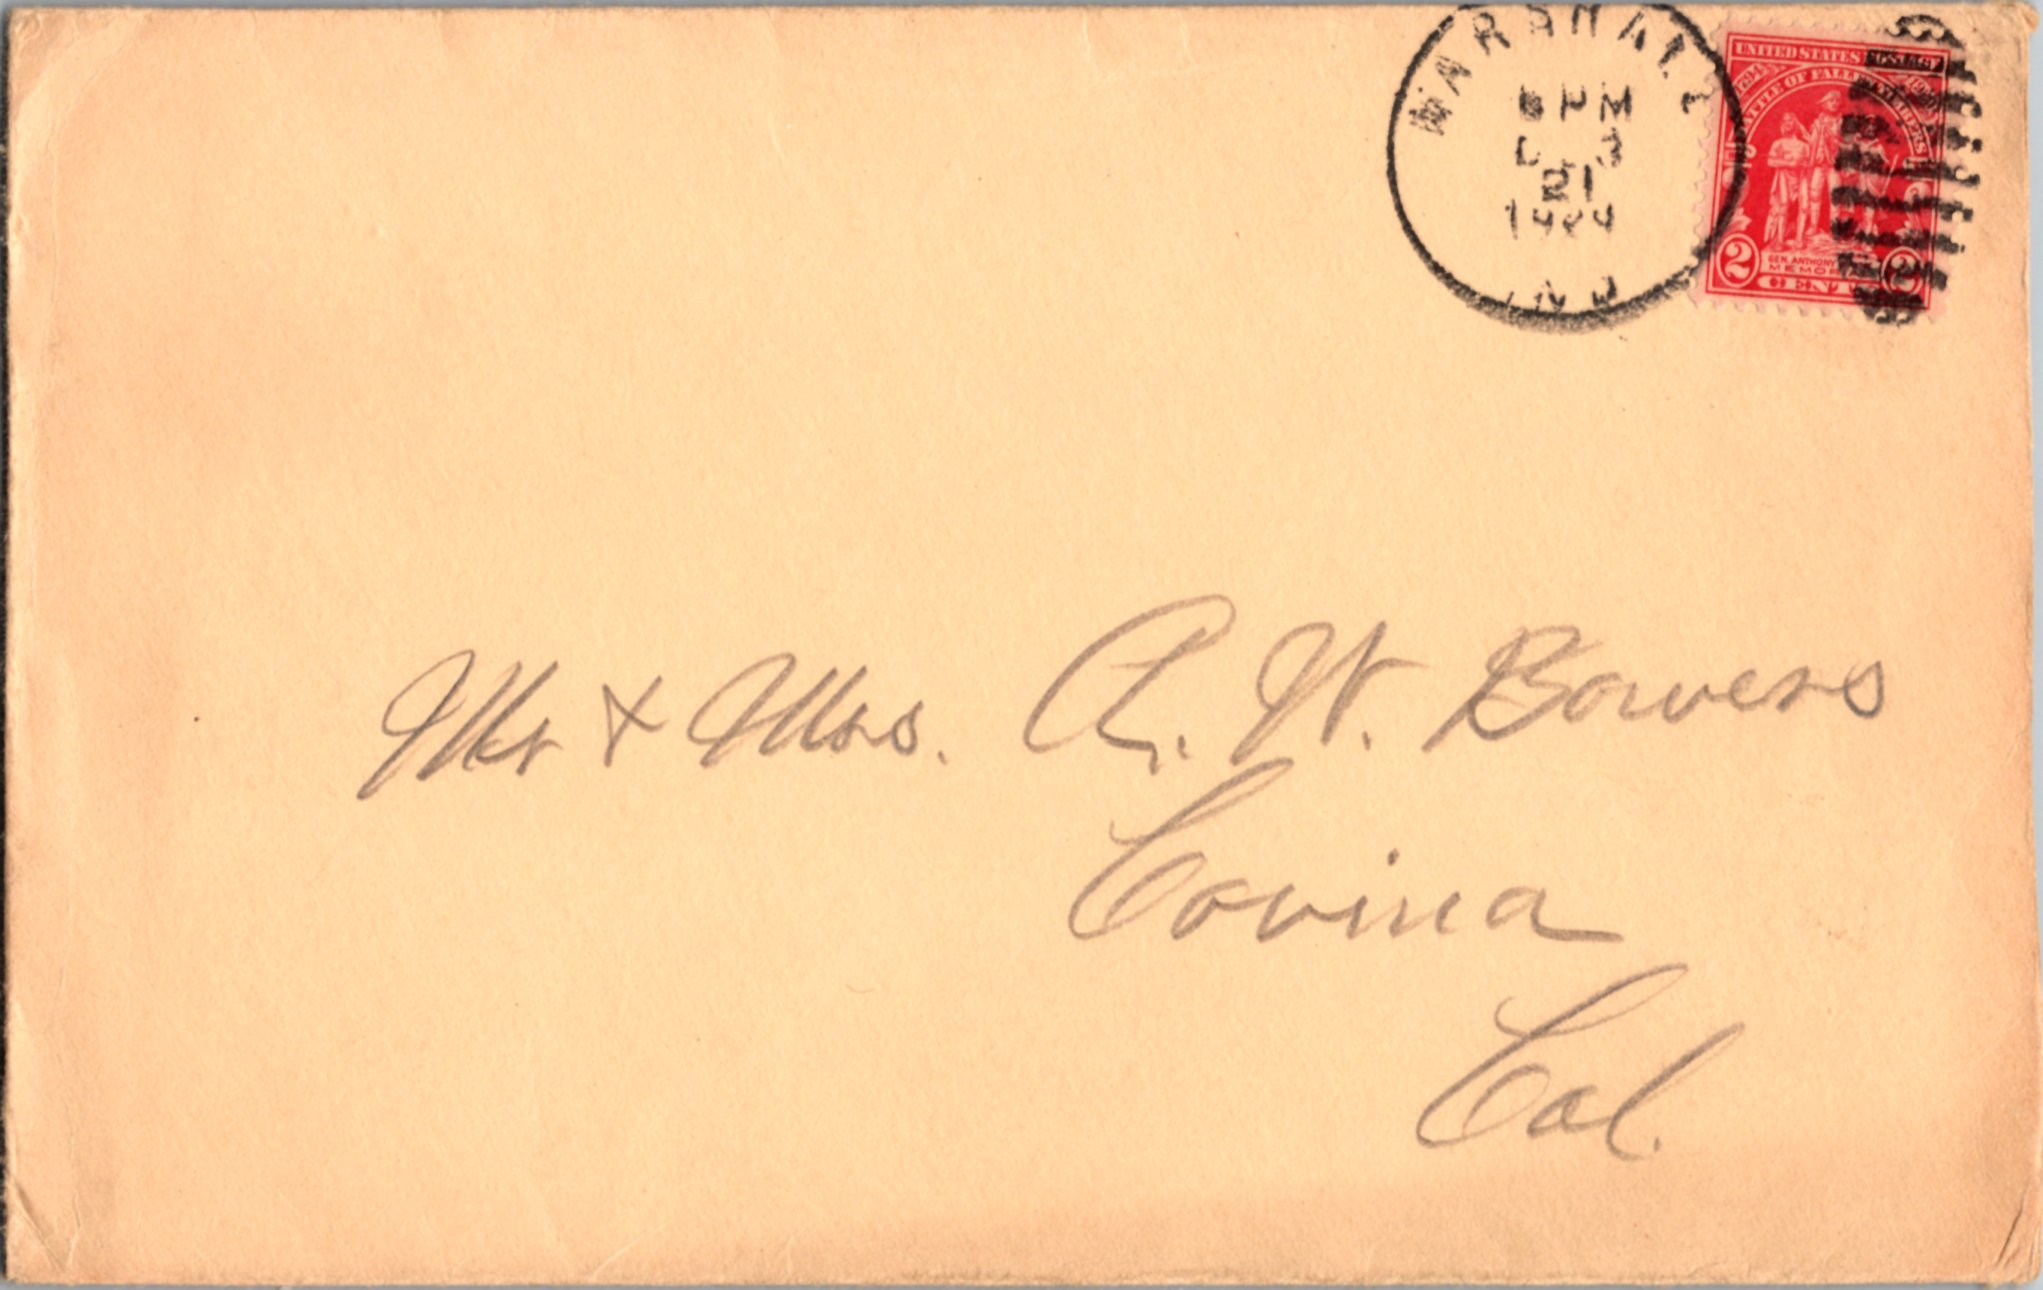 MARSHALL
PM
21
1929
IND
UNITED STATES POSTAGE
1794 BATTLE OF FALLEN TIMBERS
GEN. ANTHONY
MEMORIAL
2 CENTS 2
Mr & Mrs. A. W. Bowers
Covina
Cal.